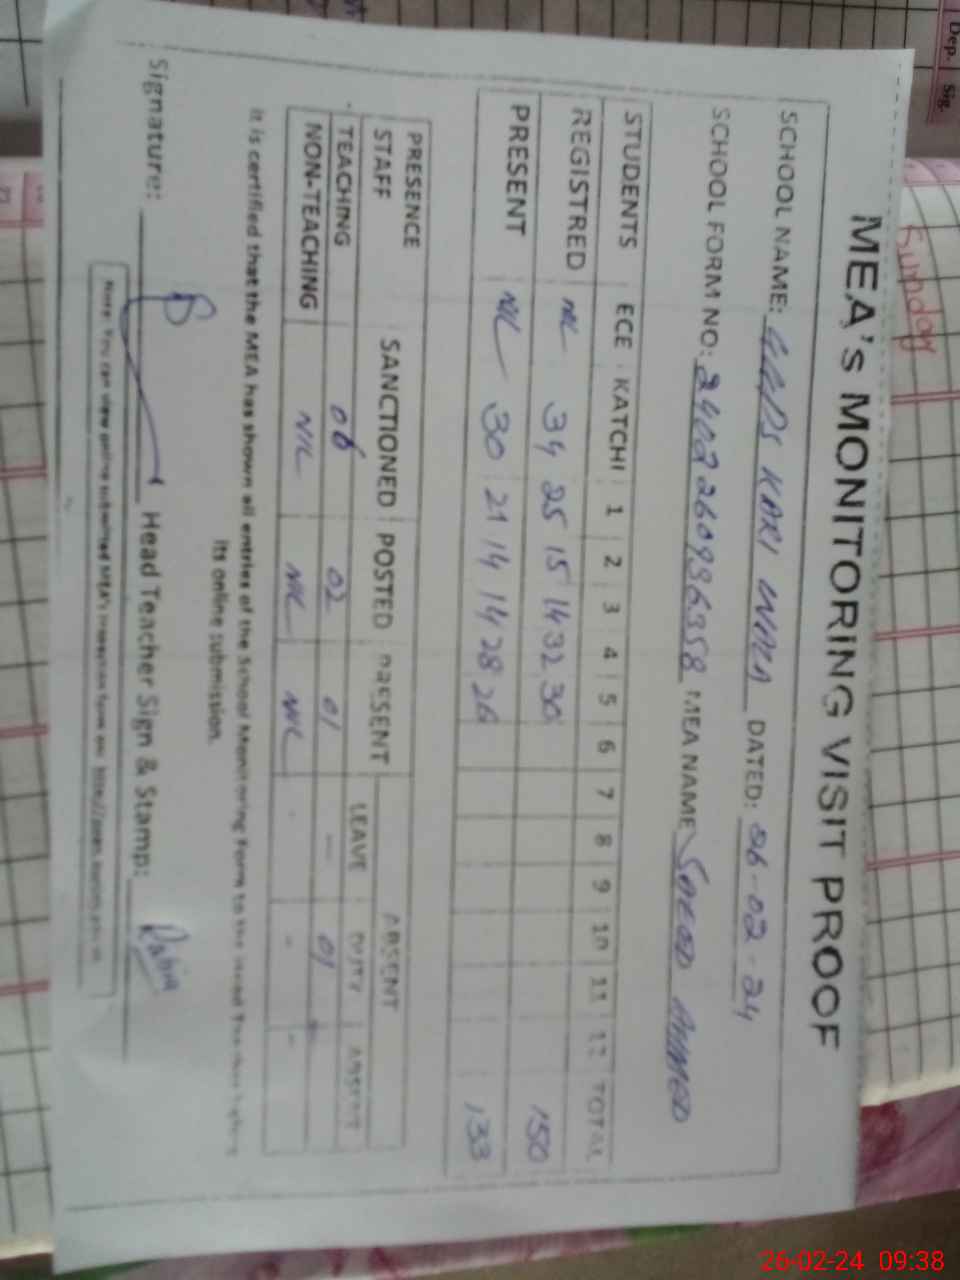 Dep. Sig.
Sunday
MEA's MONITORING VISIT PROOF
SCHOOL NAME: GGPS KARI WALA DATED: 06-02-24
SCHOOL FORM NO: 2402260936358 MEA NAME SAEED AHMED
STUDENTS ECE KATCHI 1 2 3 4 5 6 7 8 9 10 11 12 TOTAL
REGISTRED NIL 34 25 15 14 32 30 150
PRESENT NIL 30 21 14 14 28 26 133
PRESENCE ABSENT
STAFF SANCTIONED POSTED PRESENT LEAVE DUTY ABSENT
TEACHING 06 02 01 — 01 -
NON-TEACHING NIL NIL NIL - - -
It is certified that the MEA has shown all entries of the School Monitoring Form to the Head Teacher before
its online submission.
Signature: Head Teacher Sign & Stamp: Rabia
Note: You can view online submitted MEA's inspection form on:
26-02-24 09:38